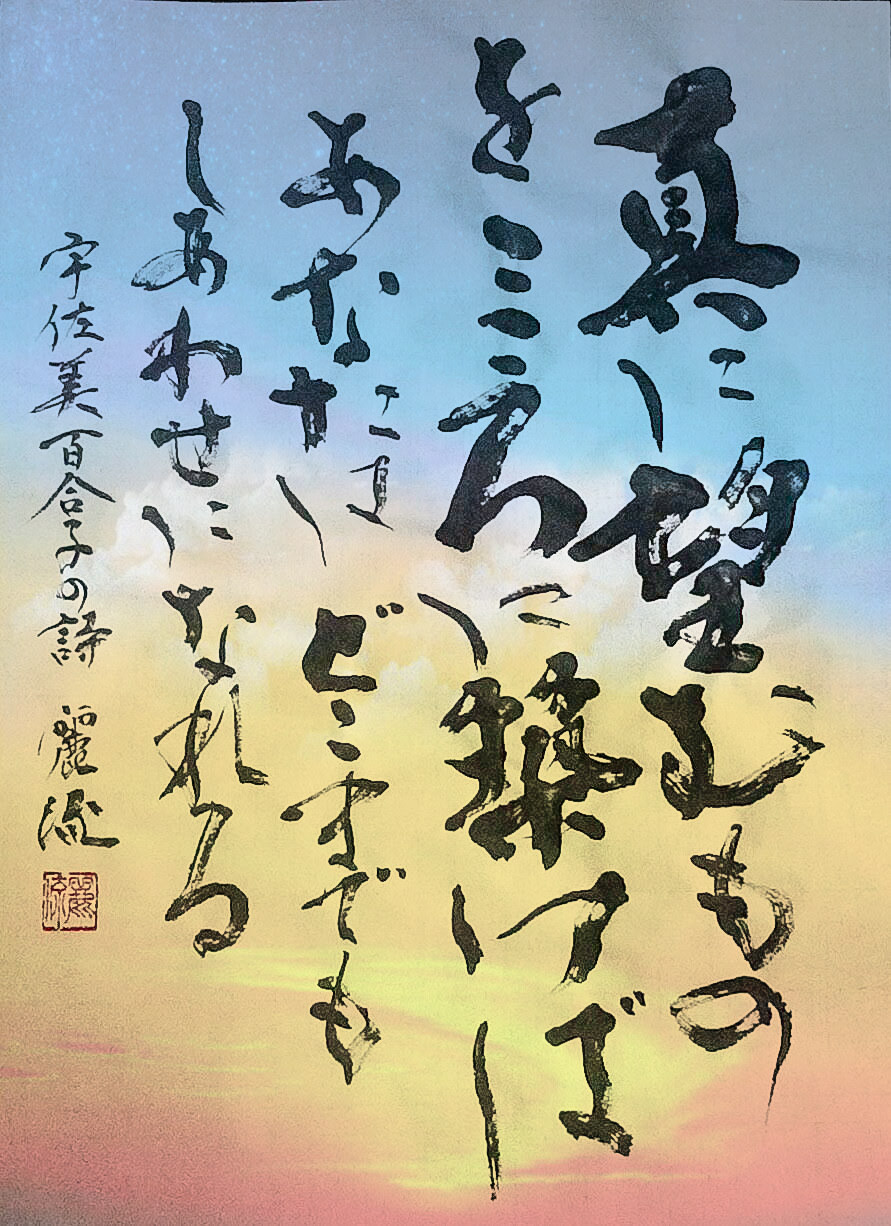 真に望むもの
をこころに築けば
あなたはどこまでも
しあわせになれる
宇佐美百合子の詩 麗流
麗流